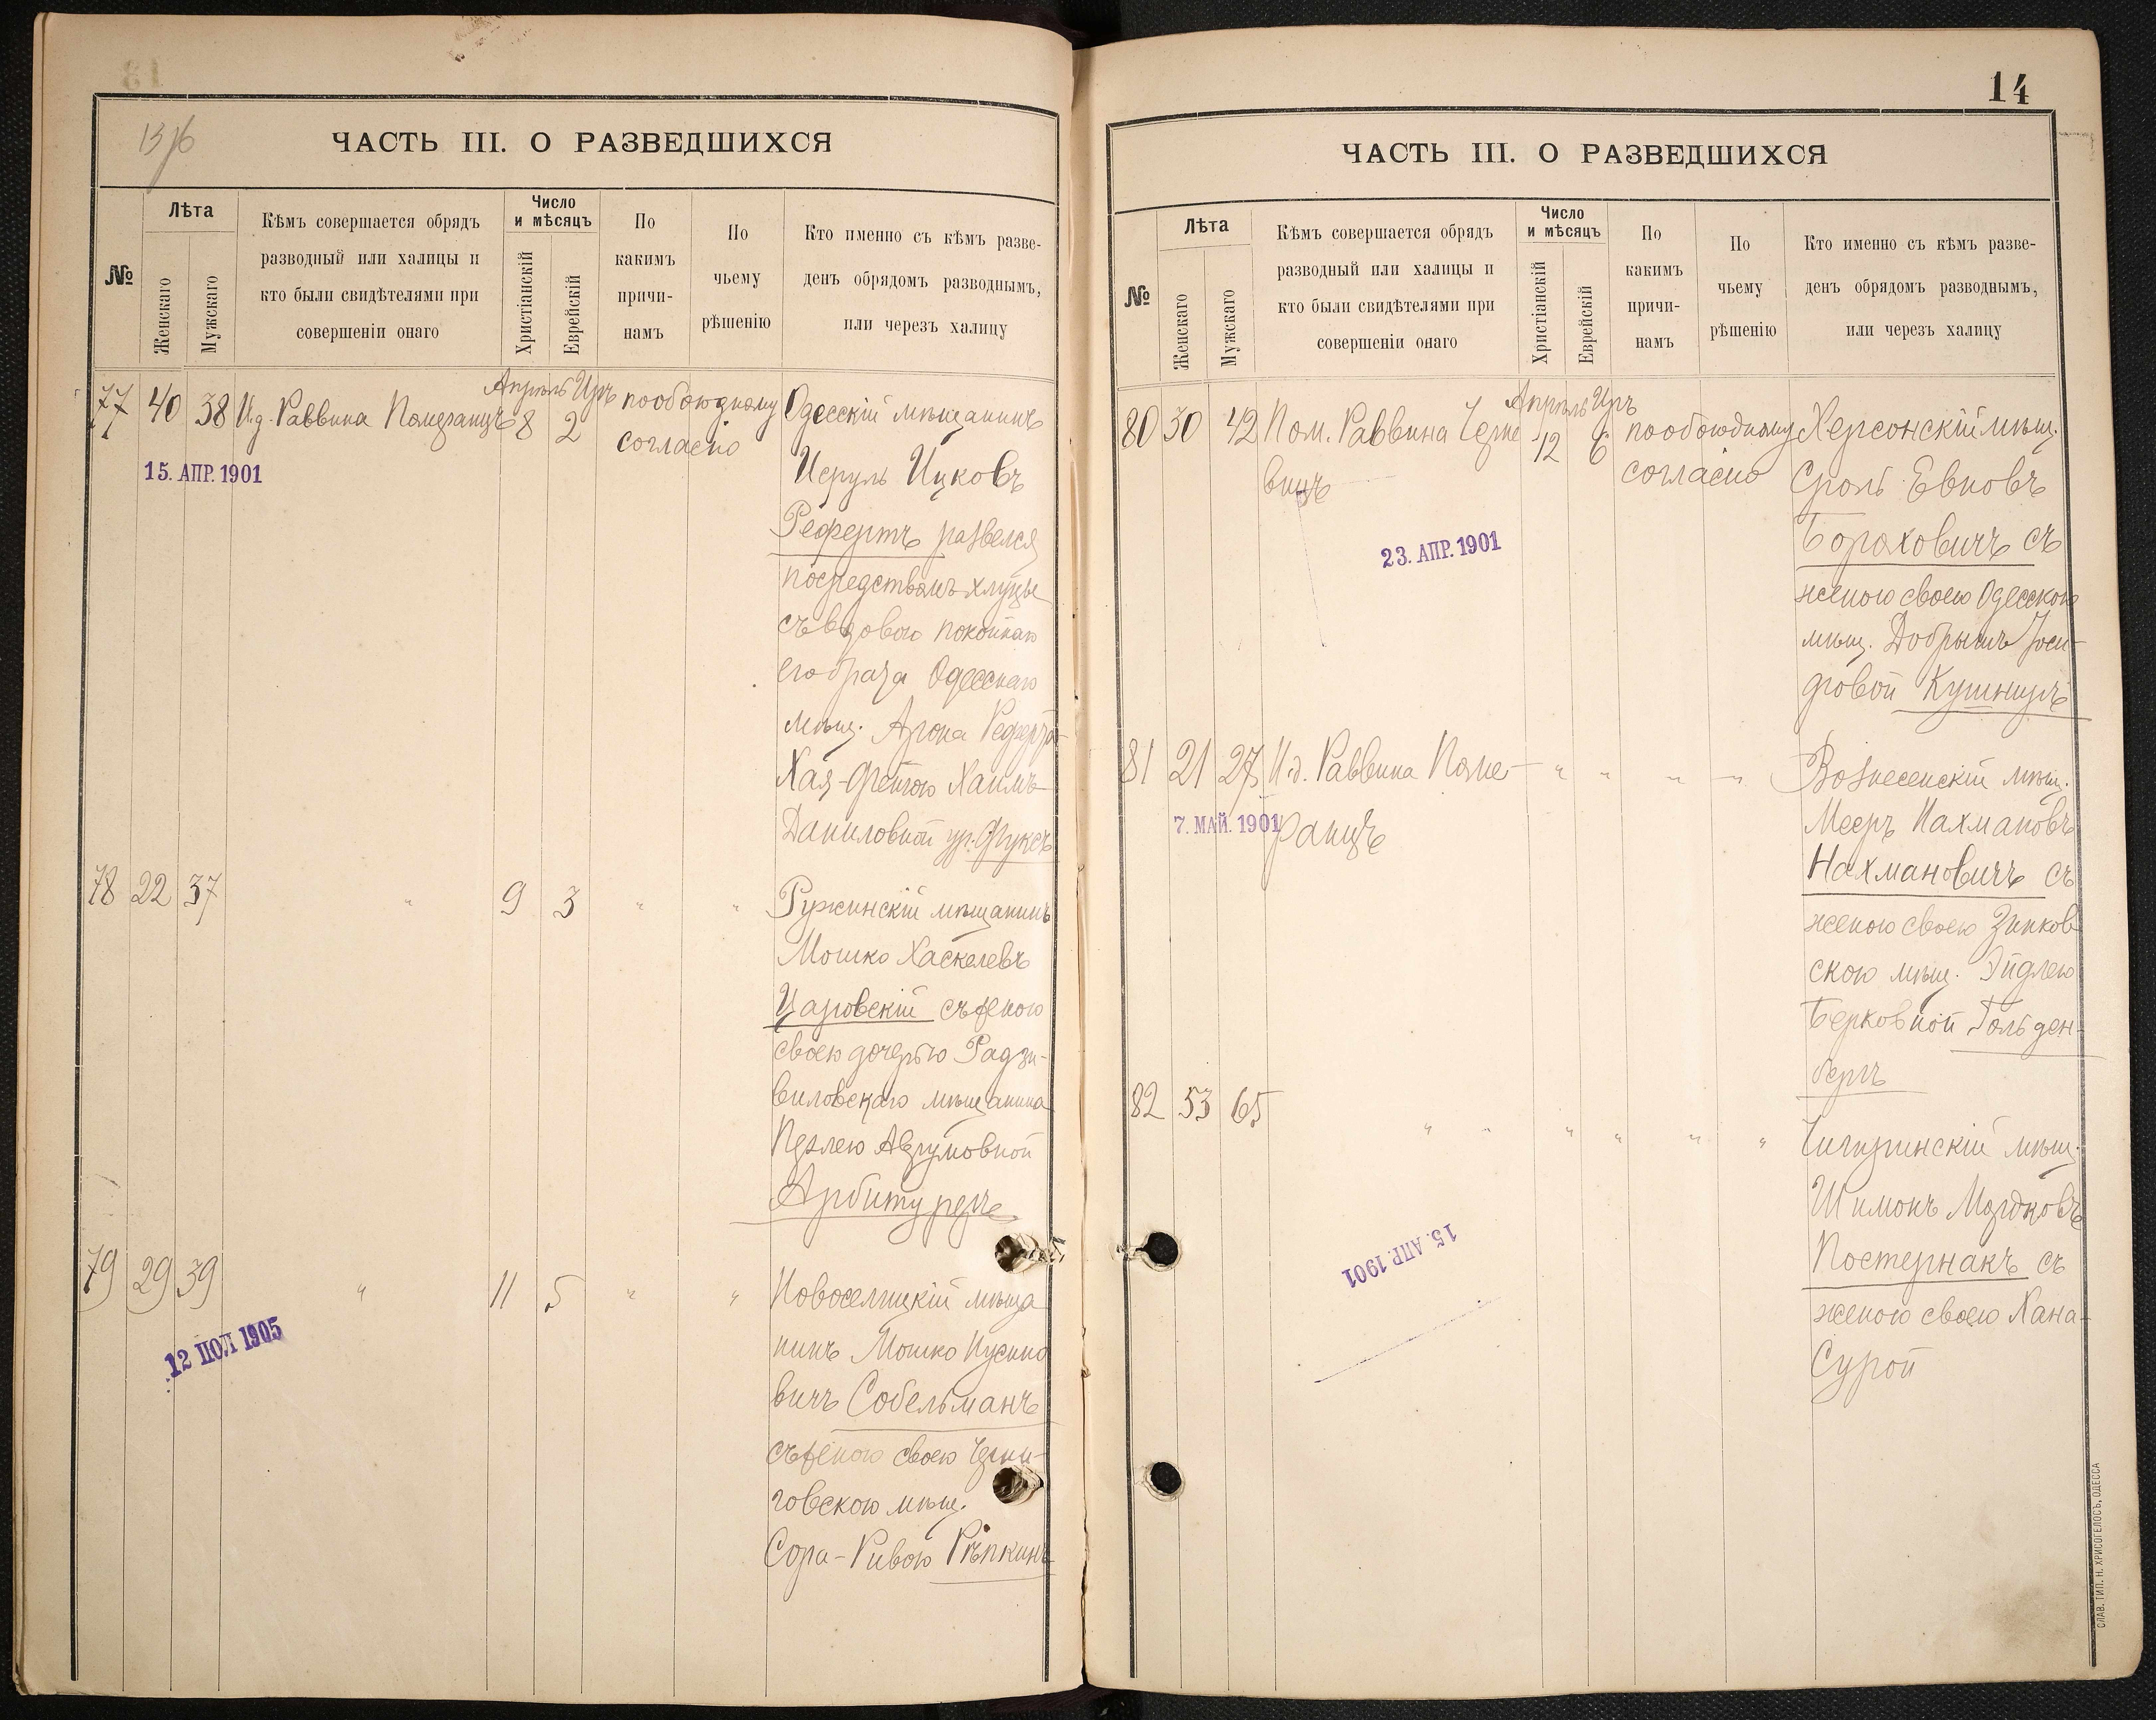 13/6
ЧАСТЬ III. О РАЗВЕДШИХСЯ
№
Лѣта
Женскаго
Мужскаго
Кѣмъ совершается обрядъ
разводный или халицы и
кто были свидѣтелями при
совершеніи онаго
Число
и мѣсяцъ
Христіанскій
Еврейскій
По
какимъ
причи-
намъ
По
чьему
рѣшенію
Кто именно съ кѣмъ разве-
денъ обрядомъ разводнымъ,
или черезъ халицу
77 40 38 И.д. Раввина Померанцъ
Апрѣль Иръ
8 2
по обоюдному
согласію
15. АПР. 1901
Одесскій мѣщанинъ
Исруль Ицковъ
Рефертъ развелся
посредствомъ хлицы
съ вдовою покойнаго
его брата Одесскаго
мѣщ. Арона Реферта
Хая-Фейгою Хаимъ
Даниловной ур. Фуксъ
78 22 37 " 9 3 " "
Ружинскій мѣщанинъ
Мошко Хаскелевъ
Царовскій съ женою
своею дочерью Радзи-
виловскаго мѣщанина
Идлею Аврумовной
Арбитуреръ
79 29 39 " 11 5 " "
12 ПОЛ 1905
Новоселицкій мѣща
нинъ Мошко Нусино
вичъ Собельманъ
съ женою своею Черни-
говскою мѣщ.
Сора-Ривою Рѣпкинъ
14
ЧАСТЬ III. О РАЗВЕДШИХСЯ
№
Лѣта
Женскаго
Мужскаго
Кѣмъ совершается обрядъ
разводный или халицы и
кто были свидѣтелями при
совершеніи онаго
Число
и мѣсяцъ
Христіанскій
Еврейскій
По
какимъ
причи-
намъ
По
чьему
рѣшенію
Кто именно съ кѣмъ разве-
денъ обрядомъ разводнымъ,
или черезъ халицу
80 30 42 Пом. Раввина Черне
вицъ
Апрѣль Иръ
12 6
по обоюдному
согласію
23. АПР. 1901
Херсонскій мѣщ.
Сроль Евновъ
Бораховичъ съ
женою своею Одесскою
мѣщ. Добрышъ Іоси-
фовой Кушниръ
81 21 27 И.д. Раввина Поме-
ранцъ
" " " "
7. МАЙ. 1901
Вознесенскій мѣщ.
Мееръ Нахмановъ
Нахмановичъ съ
женою своею Зинков
скою мѣщ. Эйдлею
Берковной Гольден-
бергъ
82 53 65 " " " " " "
15. АПР. 1901
Чигиринскій мѣщ.
Шимонъ Мордковъ
Постернакъ съ
женою своею Хана-
Сурой
СЛАВ. ТИП. Н. ХРИСОГЕЛОСЪ, ОДЕССА